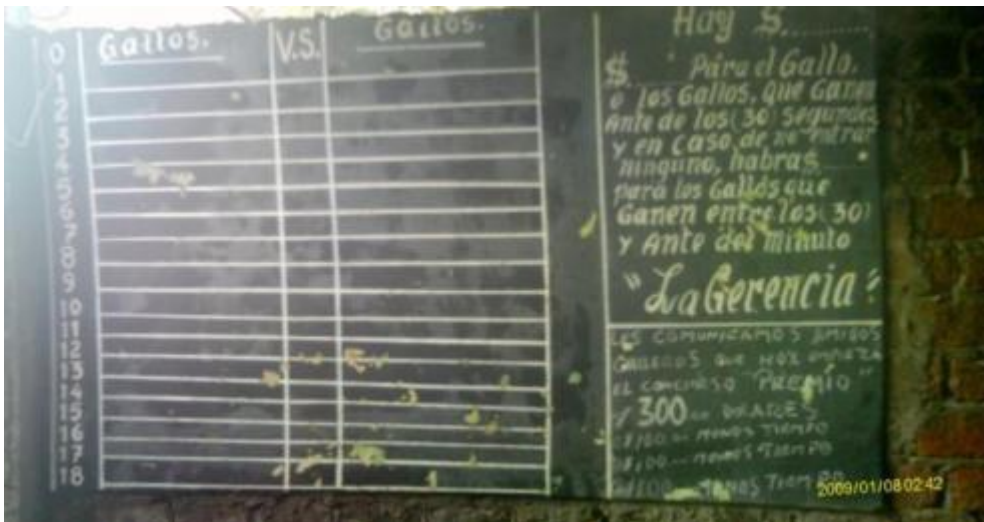 Gallos. V.S. Gallos.
0
1
2
3
4
5
6
7
8
9
10
11
12
13
14
15
16
17
18
Hay $.........
$ Para el Gallo,
o los Gallos, que Ganen
Ante de los (30) Segundos
y en caso de no entrar
ninguno, habra $
para los Gallos que
Ganen entre los (30)
y Ante del minuto
"La Gerencia"
LES COMUNICAMOS AMIGOS
GALLEROS QUE HOY EMPIEZA
EL CONCURSO "PREMIO"
300
MENOS TIEMPO
MENOS TIEMPO
MENOS TIEMPO
2009/01/08 02:42